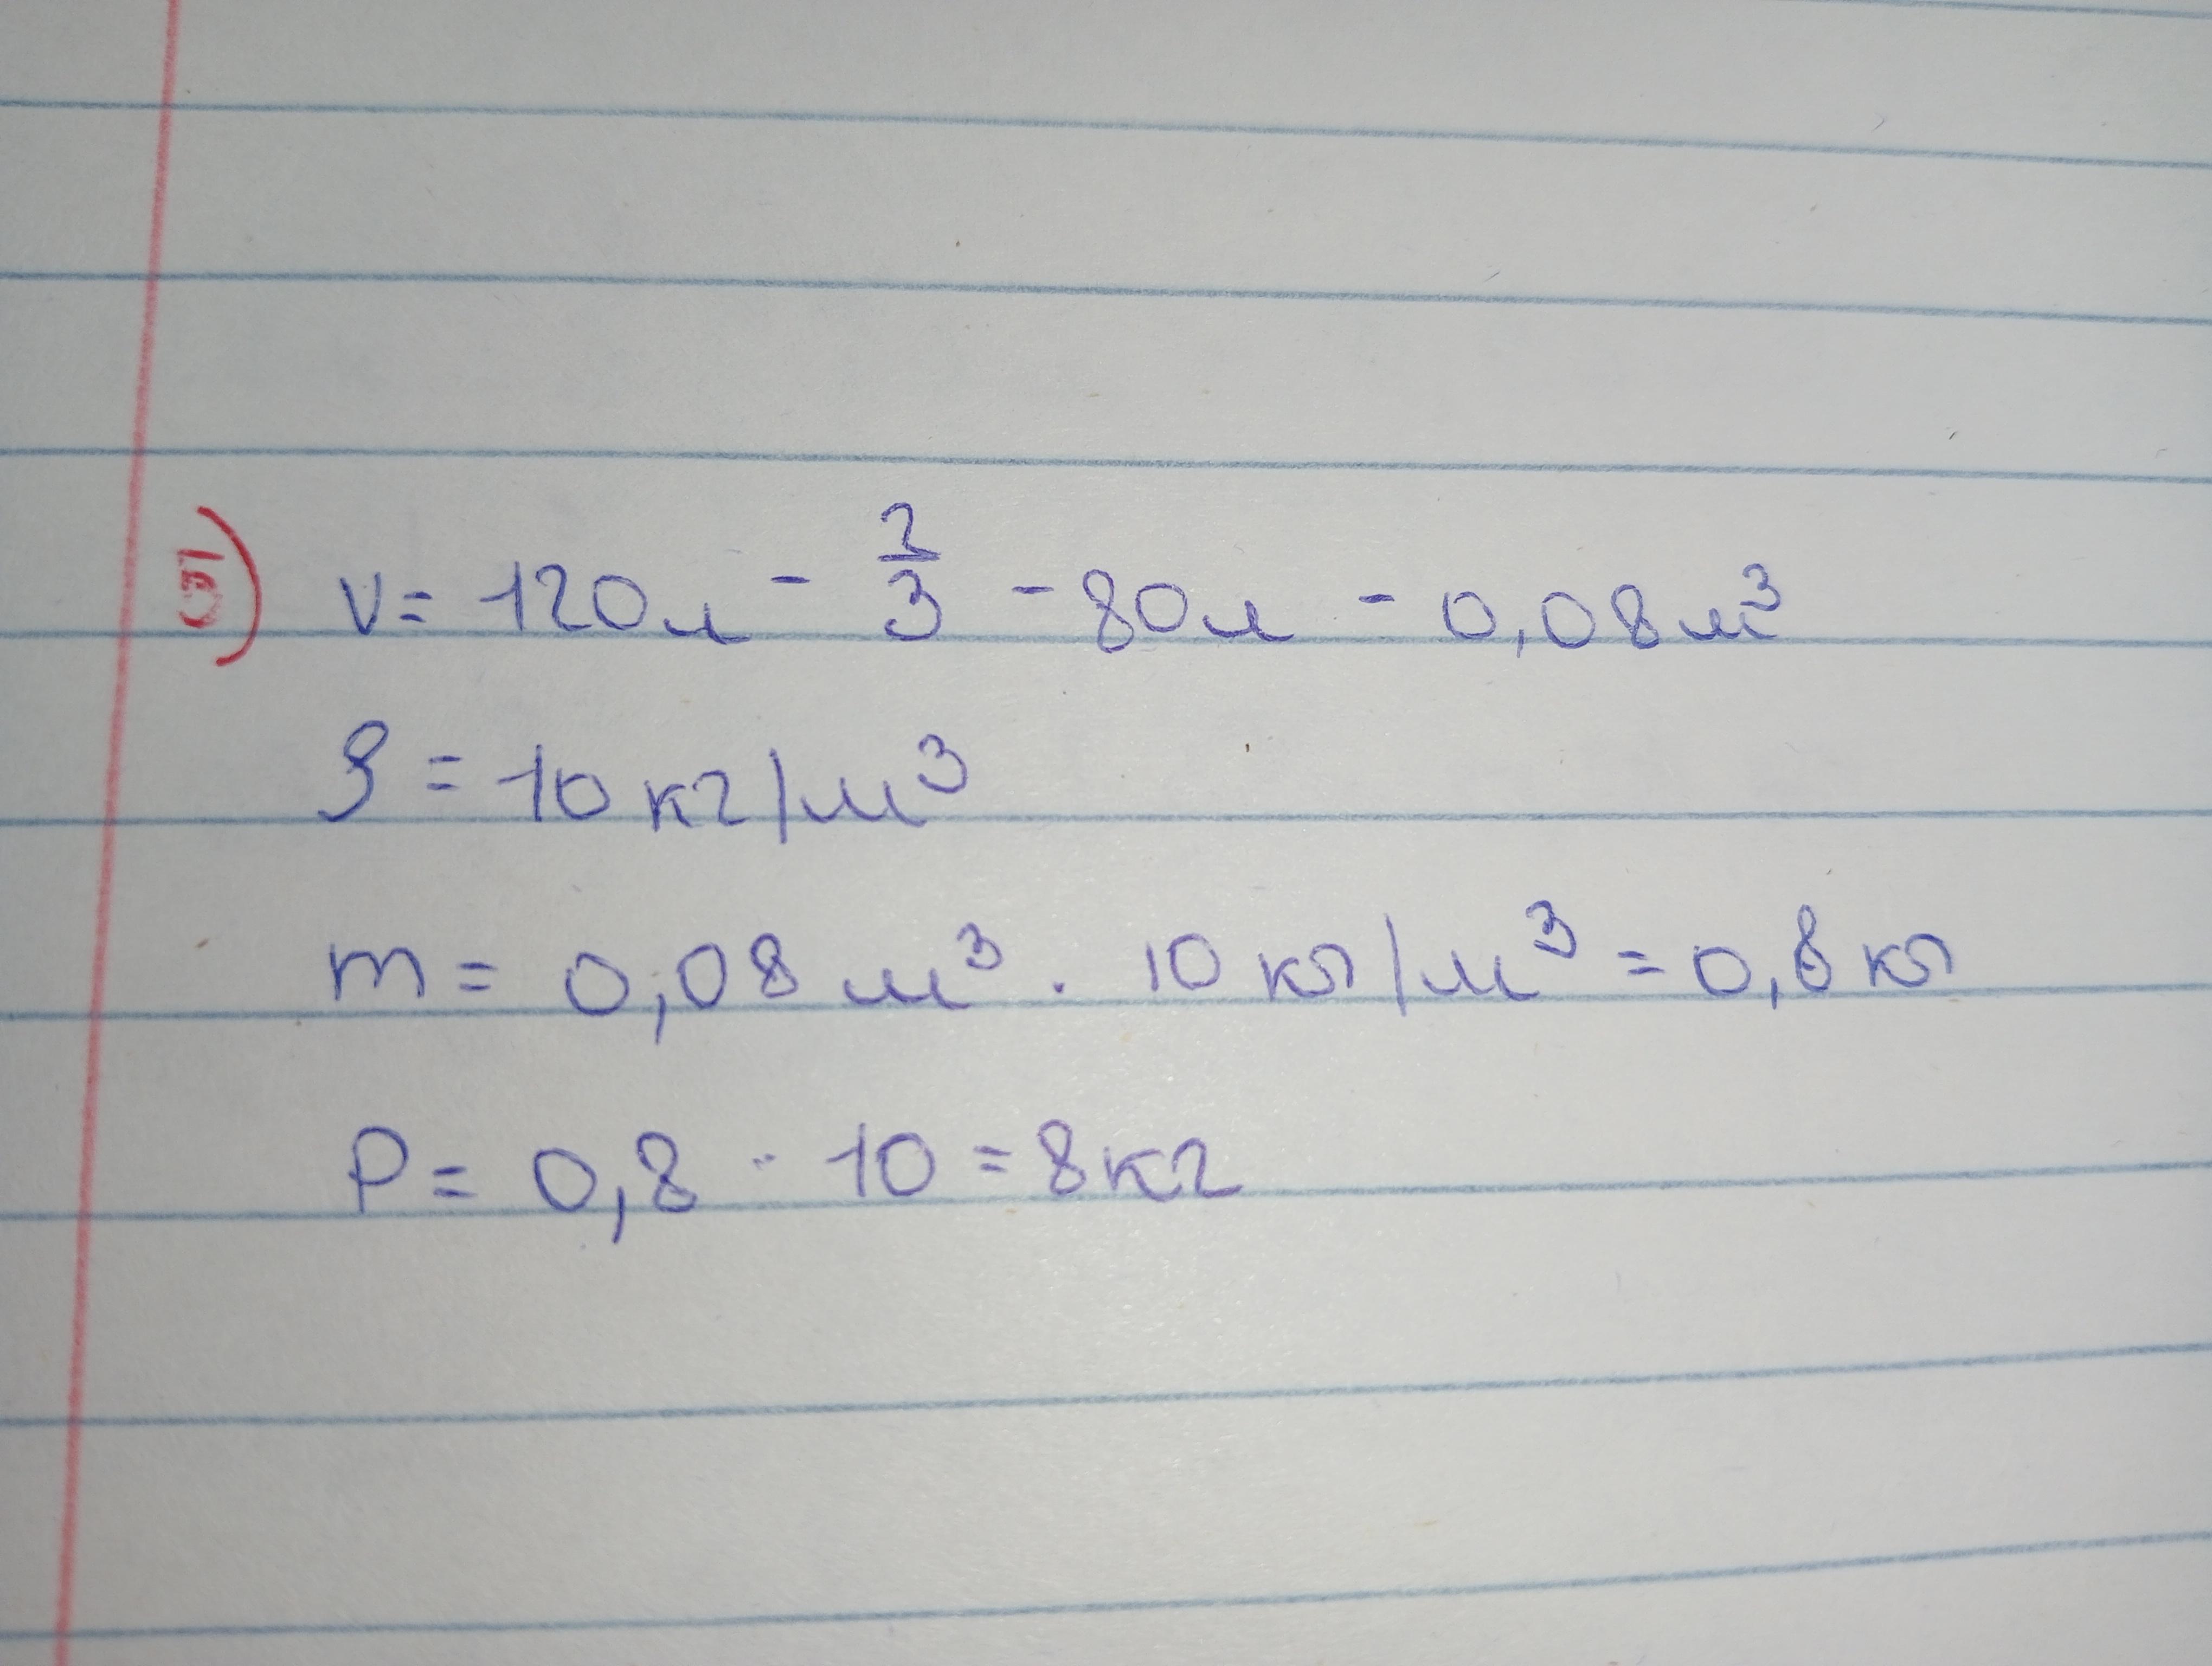 5) V= 120л - 2/3 - 80л - 0,08м³
ρ = 10 кг/м³
m = 0,08 м³ . 10 кг/м³ = 0,8 кг
P = 0,8 · 10 = 8кг